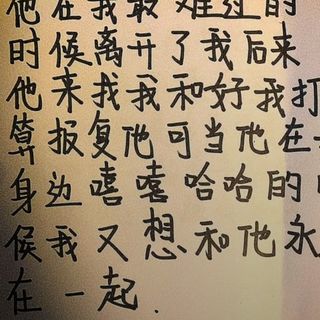 他在我最难过的
时候离开了我后来
他来找我和好我打
算报复他可当他在
身边嘻嘻哈哈的
候我又想和他永
在一起.